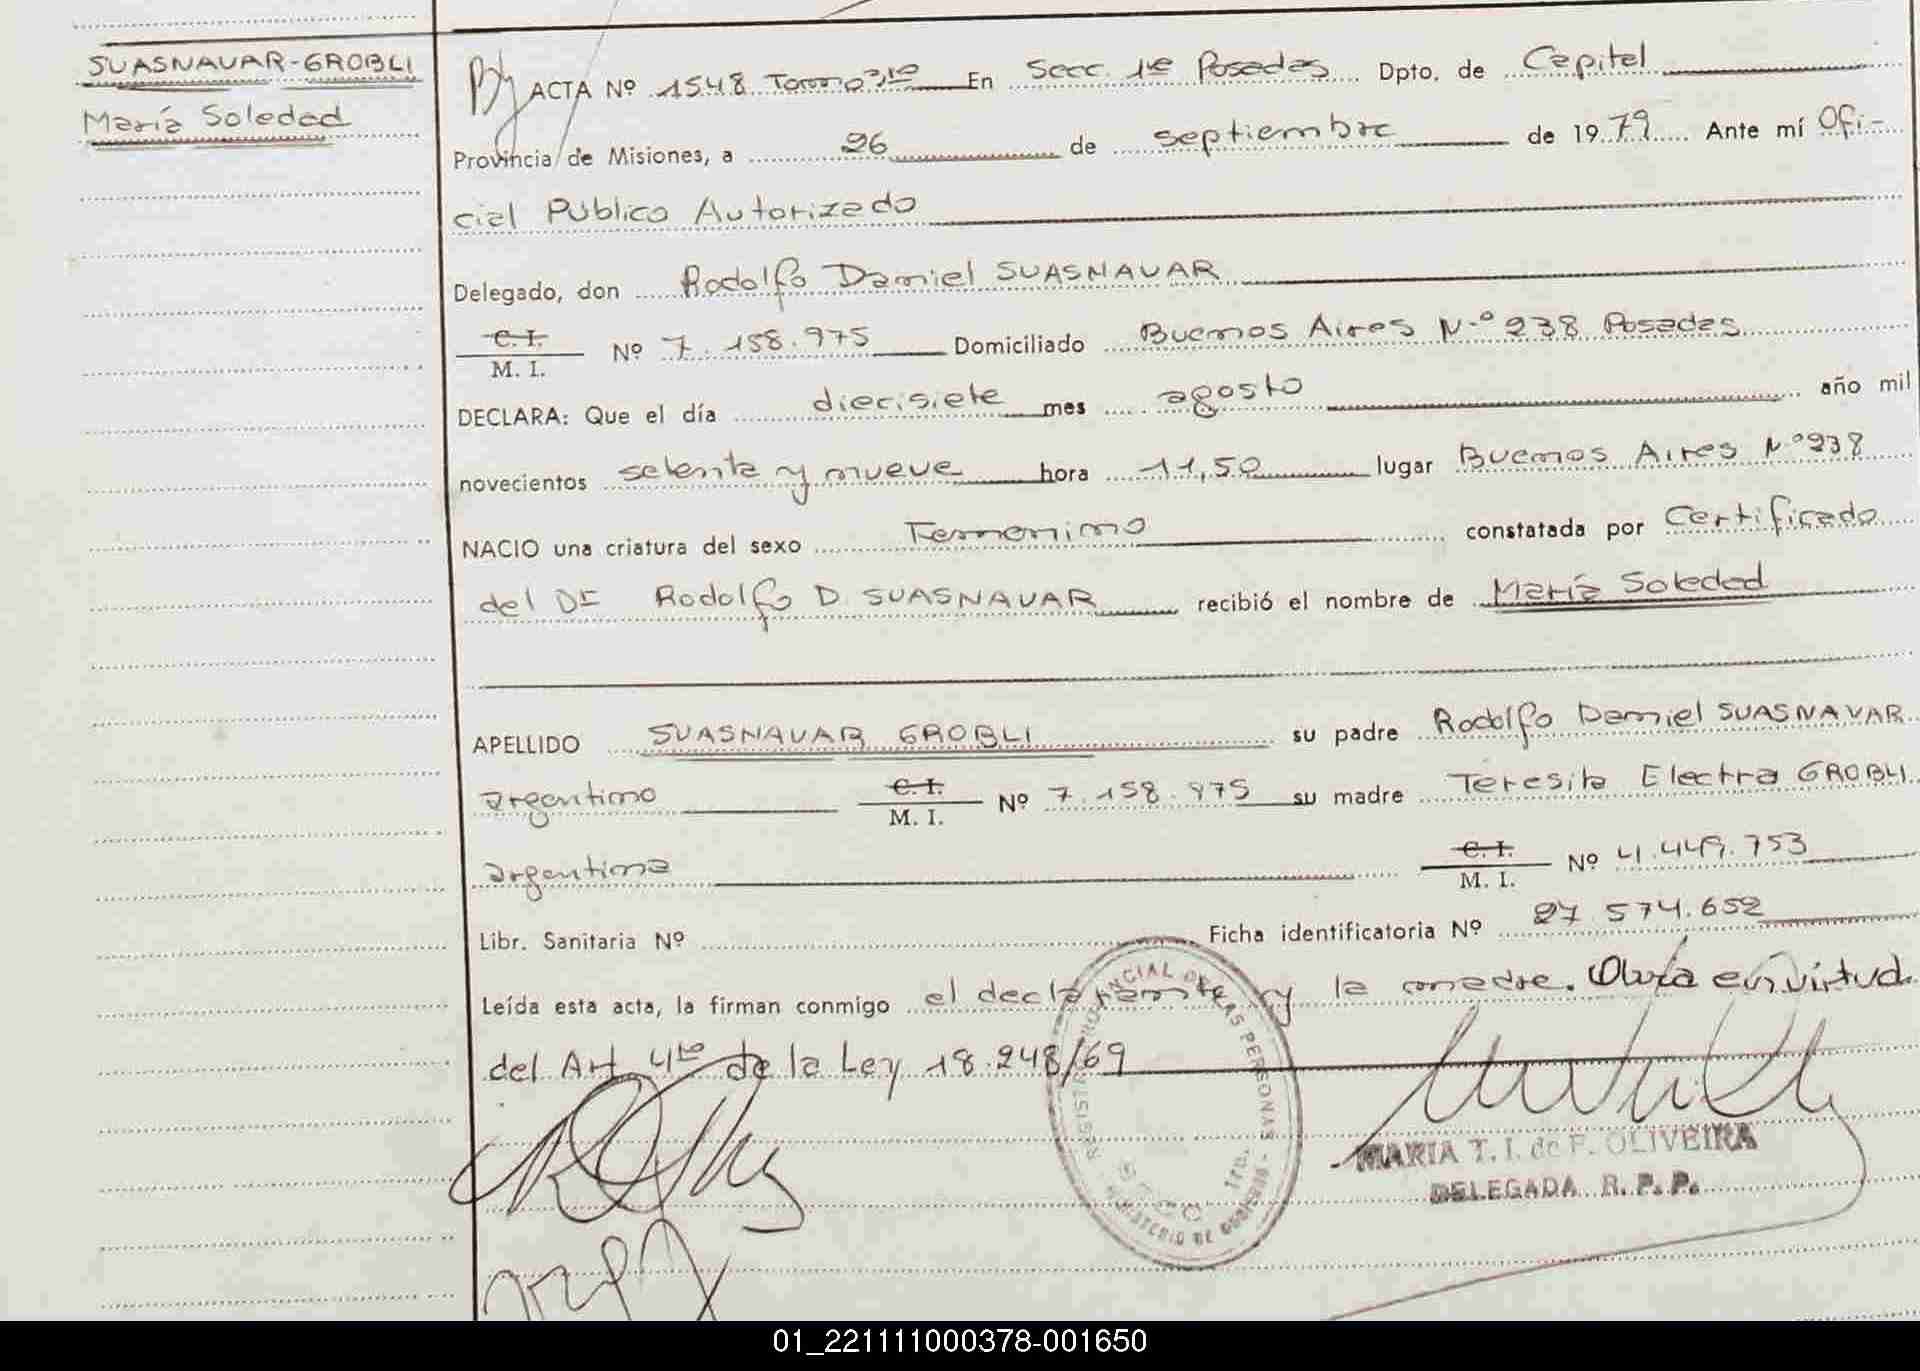 SUASNAVAR-GROBLI
María Soledad
ACTA Nº 1548 Tomo 3ro En Secc. 1ª Posadas Dpto. de Capital
Provincia de Misiones, a 26 de septiembre de 1979 Ante mí Ofi-
cial Público Autorizado
Delegado, don Rodolfo Daniel SUASNAVAR
C. I.
M. I. Nº 7.158.975 Domiciliado Buenos Aires N.º 238 Posadas
DECLARA: Que el día diecisiete mes agosto año mil
novecientos setenta y nueve hora 11,50 lugar Buenos Aires Nº 238
NACIO una criatura del sexo Femenino constatada por Certificado
del Dr Rodolfo D. SUASNAVAR recibió el nombre de María Soledad
APELLIDO SUASNAVAR GROBLI su padre Rodolfo Daniel SUASNAVAR
argentino C. I. M. I. Nº 7.158.975 su madre Teresita Electra GROBLI
argentina C. I. M. I. Nº 4.449.753
Libr. Sanitaria Nº Ficha identificatoria Nº 27.574.652
Leída esta acta, la firman conmigo el declarante y la madre. Obra en virtud
del Art. 4to de la Ley 18.248/69
REGISTRO PROVINCIAL DE LAS PERSONAS
MINISTERIO DE GOBIERNO
MARIA T. I. de F. OLIVEIRA
DELEGADA R. P. P.
01_221111000378-001650